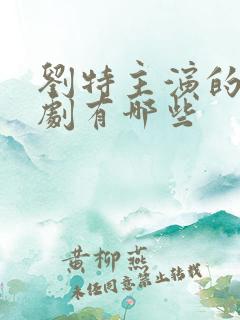 劉特主演的
劇有哪些
黃柳燕
未经同意禁止转载